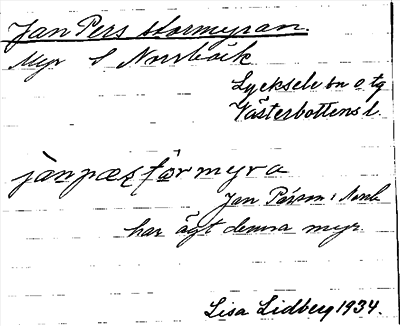 Jan Pers stormyran.
Myr S Norrbäck
Lycksele sn o tg
Västerbottens l.
jànpæṣ stórmyra
Jan Persson i Norrb.
har ägt denna myr.
Lisa Lidberg 1934.